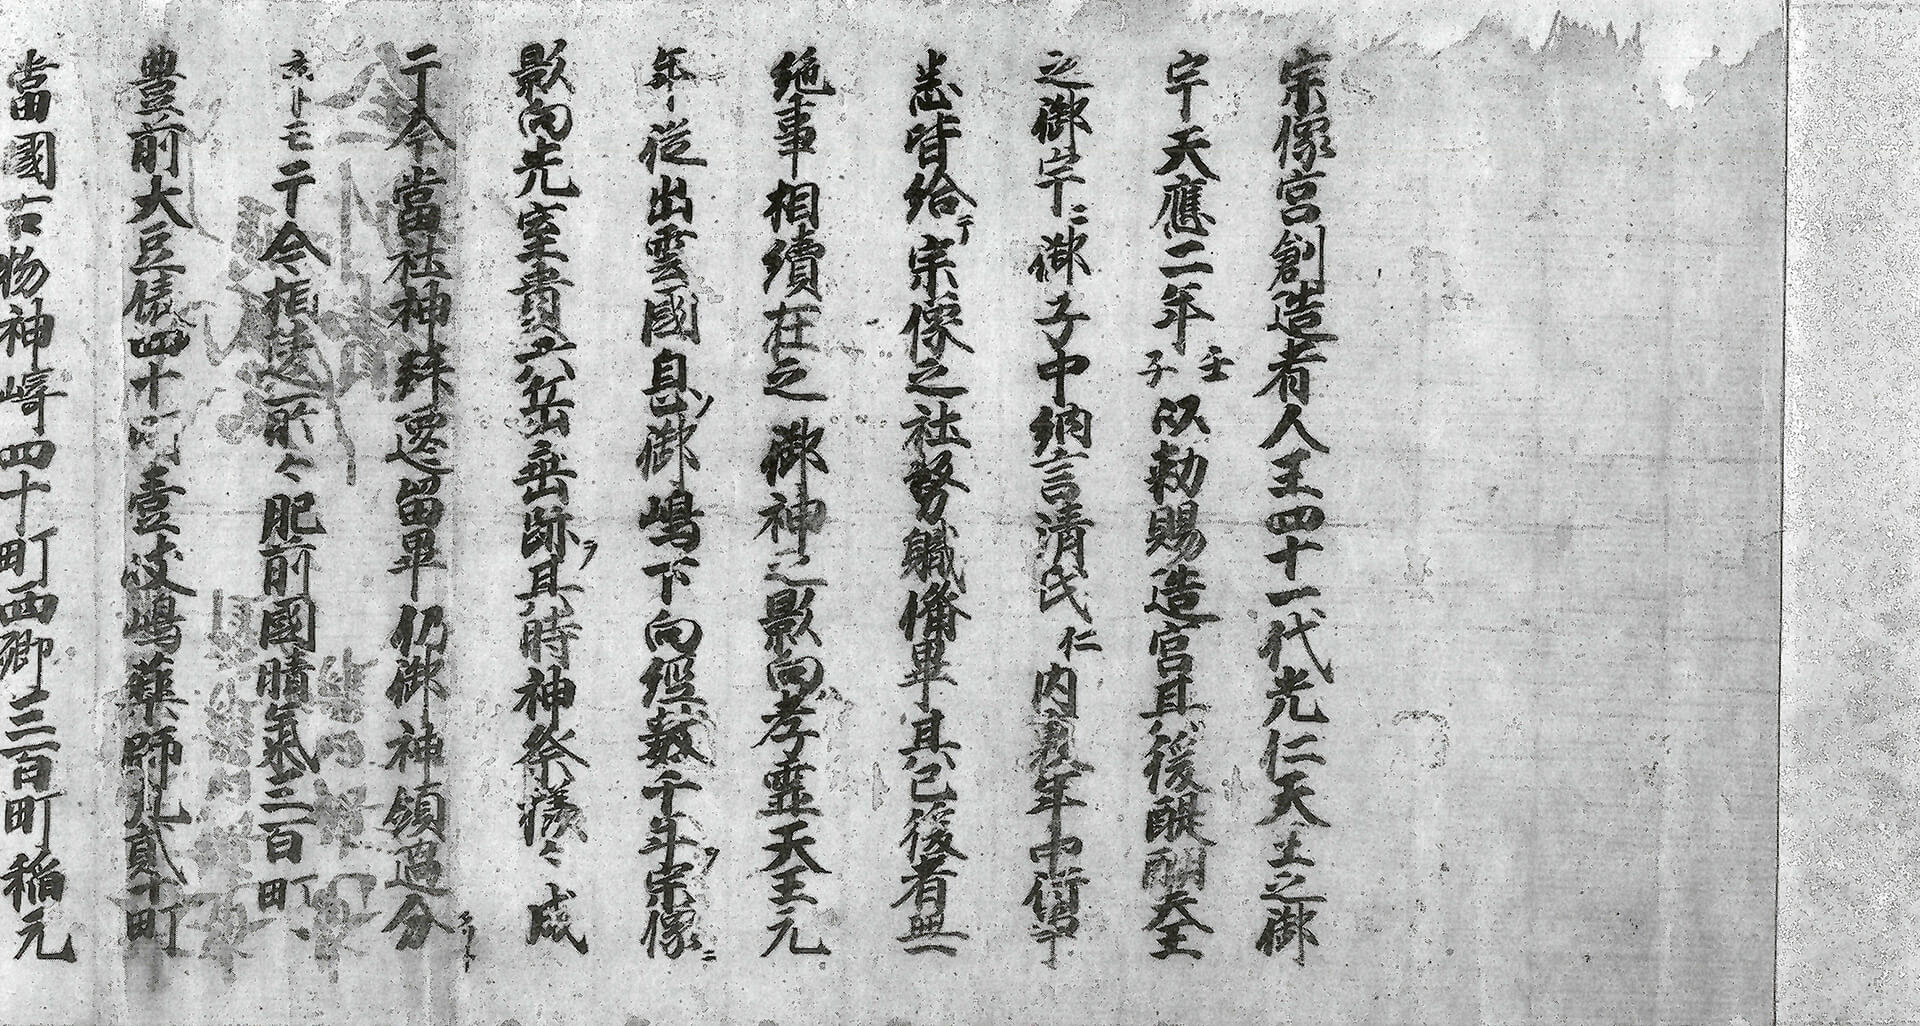 宗像宮創造者人王四十一代光仁天王之御
宇天應二年壬子以勅賜造宮且後醍醐天王
之御宇ニ御子中納言清氏仁内裏年中
悉皆給テ宗像之社努職備畢其已後者無
絶事相續在之御神之影向孝霊天王元
年従出雲國息ノ御嶋下向經数千年ヲ宗像ニ
影向先室貴六岳垂跡ヲ其時神祭様々成
于今當社神殊遷留畢仍御神領過分
亦トモ于今相違所々肥前國晴氣三百町
豊前大豆俵四十町壹岐嶋薬師丸貳十町
當國古物神崎四十町西郷三百町稲元